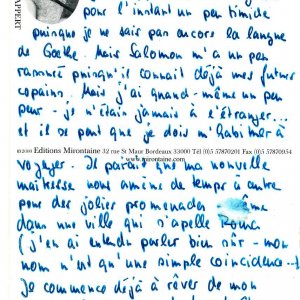 APPERT
pour l'instant un peu timide
puisque je ne sais pas encore la langue
de Goethe. Mais Salomon m'a un peu
rassuré puisqu'il connait déjà mes futurs
copains. Mais j'ai quand-même un peu
peur - je n'étais jamais à l'étranger...
et il se peut que je dois m'habituer à
©2000 Editions Mirontaine 32 rue St Maur Bordeaux 33000 Tél (0)5 57870201 Fax (0)5 57870954
www.mirontaine.com
voyager. Il parait que ma nouvelle
maîtresse nous amène de temps à autre
pour des jolies promenades même
dans une ville qui s'appelle Rouen
(j'en ai entendu parler bien sûr - mon
nom n'est qu'une simple coincidence...)
Je commence déjà à rêver de mon